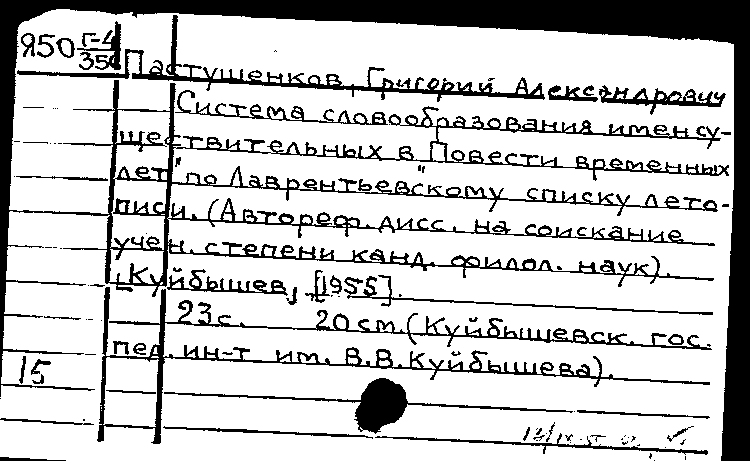 Я50 Г-4/356
Пастушенков, Григорий Александрович
Система словообразования имен су-
ществительных в "Повести временных
лет" по Лаврентьевскому списку лето-
писи. (Автореф. дисс. на соискание
учен. степени канд. филол. наук).
Куйбышев, [1955].
23с. 20 см. (Куйбышевск. гос.
пед. ин-т им. В.В.Куйбышева).
15